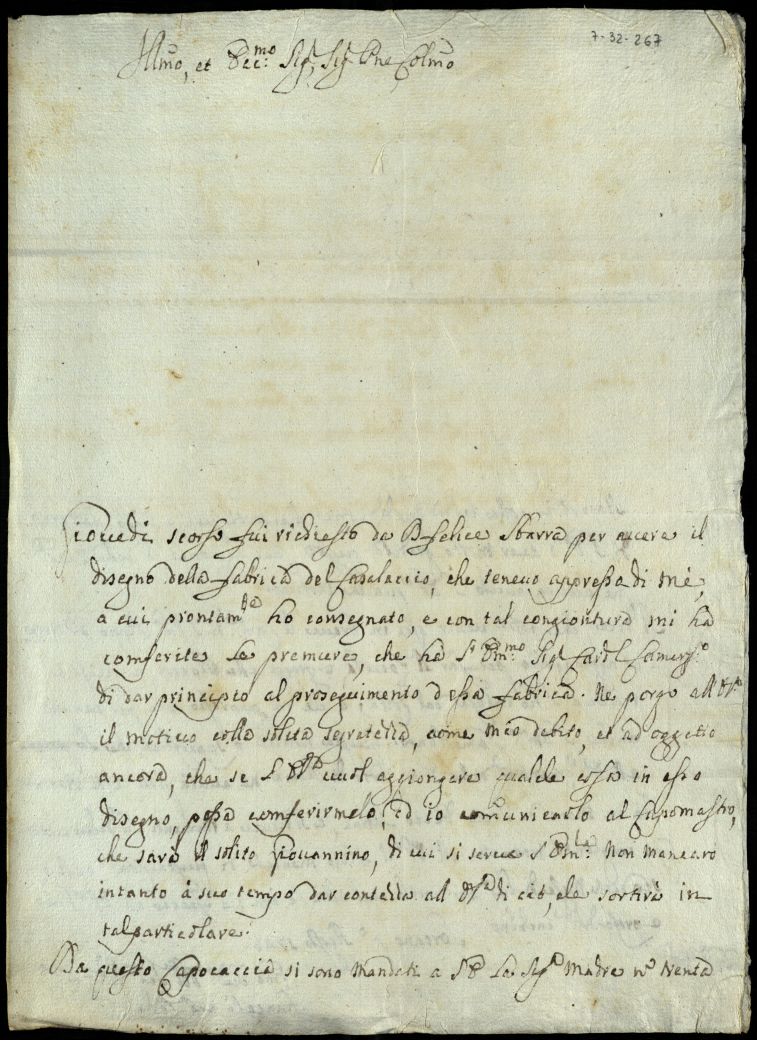 7-32-267
Illmo, et Ecc:mo Sig.r Sig.r Pne Colmo
Giovedi scorso fui richiesto da Felice Sbarra per avere il
disegno della fabrica del Casalaccio, che tenevo appresso di mè,
a cui prontam.te ho consegnato, e con tal congiontura mi ha
comferite le premure, che ha l'Em:mo Sig.r Card.l Camerg.o
di dar principio al proseguimento d'essa fabrica. Ne porgo all'
il motivo colla solita segretezza, come mio debito, et ad oggetto
ancora, che se vuol aggiongere qualche cossa in esso
disegno, possa comferirmelo, ed io comunicarlo al Capomastro,
che sarà il solito Giovannino, di cui si serve l'Em:za Non mancarò
intanto à suo tempo dar contezza all' di ciò, che sortirà in
tal particolare.
Da questo Capocaccia si sono mandati a La Sig.ra Madre n.o trenta